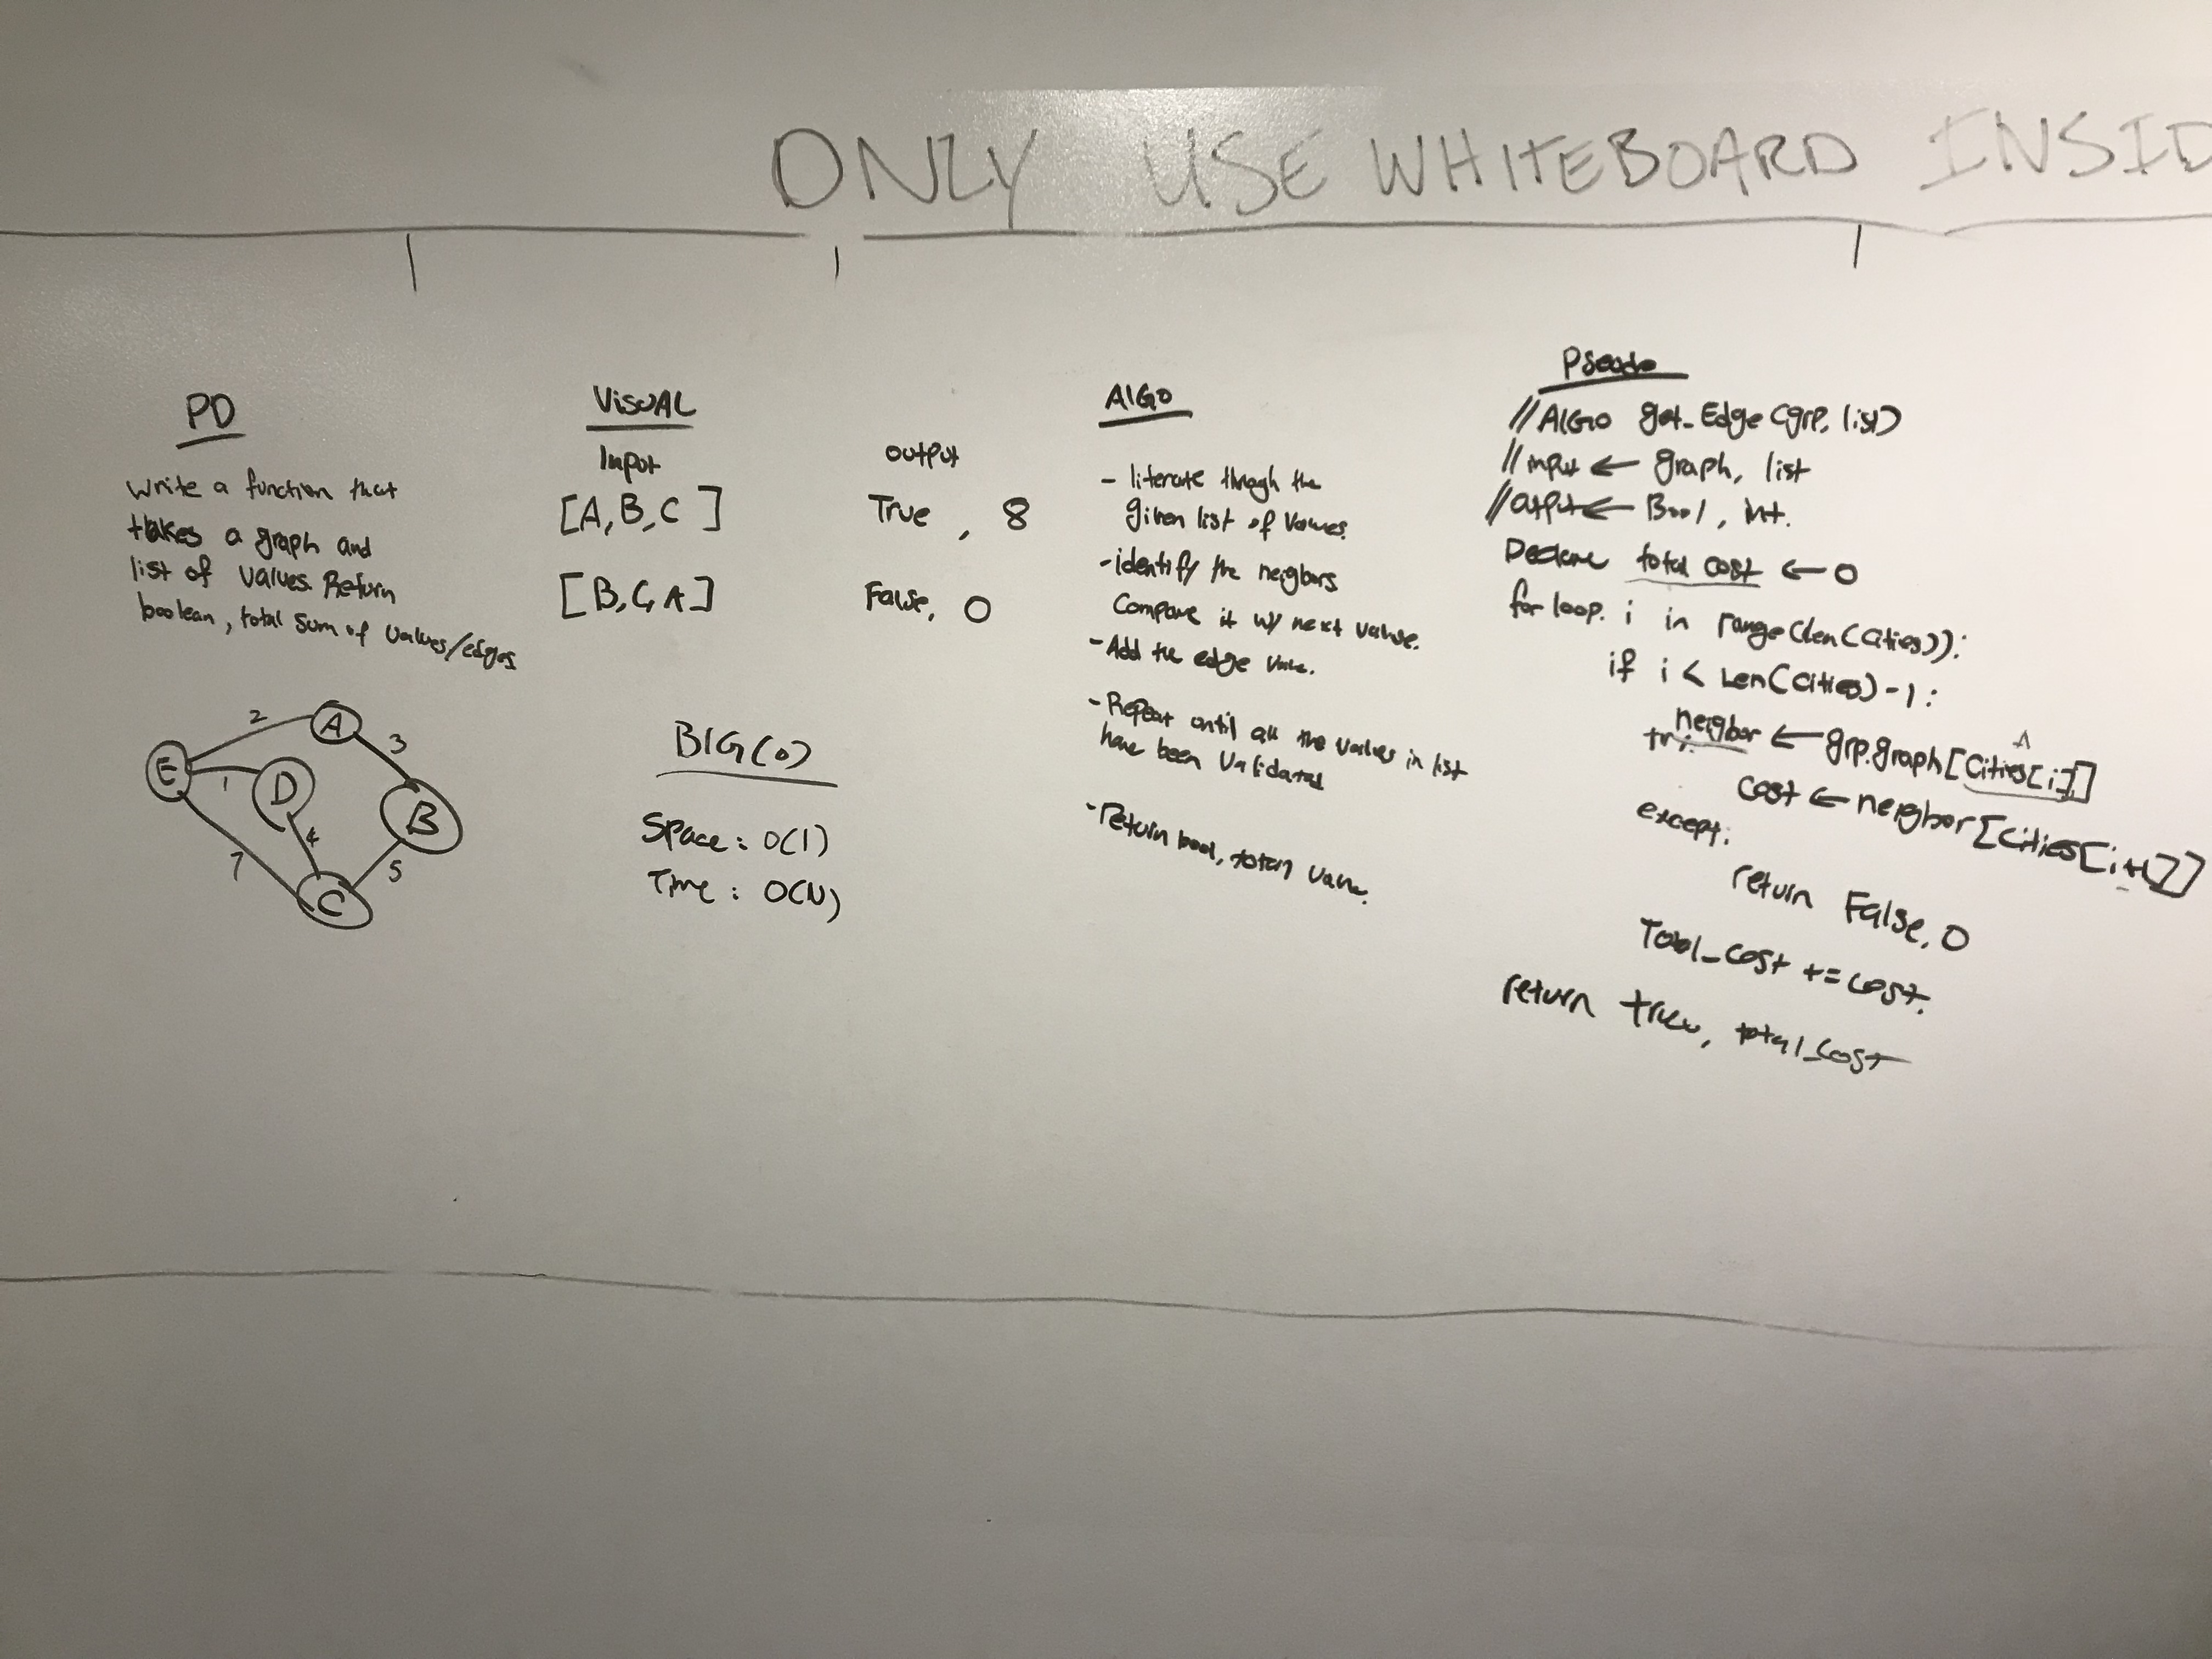 ONLY USE WHITEBOARD INSID
PD
Write a function that
takes a graph and
list of values. Return
boolean, total sum of values/edges
2
A
3
E
1
D
B
4
7
5
C
VISUAL
Input
output
[A, B, C]
True, 8
[B, C, A]
False, 0
BIG(O)
Space: O(1)
Time: O(N)
AlGO
- Iiterate through the
given list of values.
- identify the neigbors
Compare it w/ next value.
- Add the edge value.
- Repeat until all the values in list
have been validated
- return bool, total value.
Pseudo
//AlGO get_Edge(grp, list)
//input ← graph, list
//output ← Bool, int.
Declare total cost ← 0
for loop. i in range(len(cities)):
if i < Len(cities) -1:
A
try: neigbor ← grp.graph[cities[i]]
cost ← neigbor[cities[i+1]]
except:
return False, 0
Total_cost += cost.
return true, total_cost